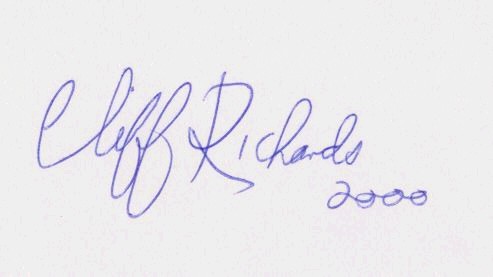 Cliff Richards
2000